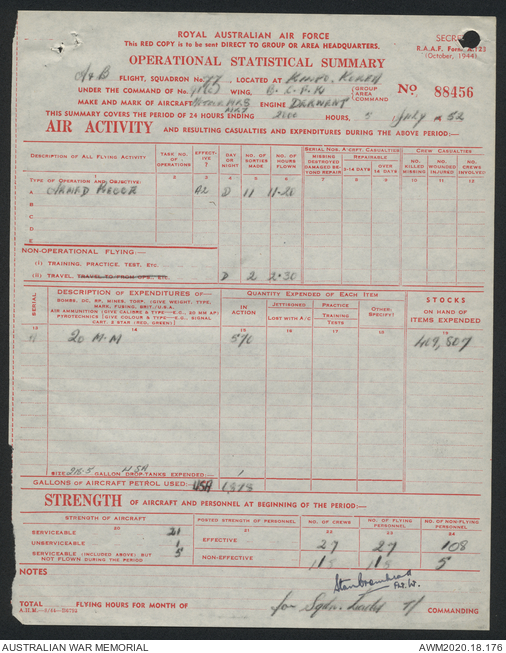 ROYAL AUSTRALIAN AIR FORCE
This RED COPY is to be sent DIRECT TO GROUP OR AREA HEADQUARTERS.
R.A.A.F. Form
(October, 1944)
OPERATIONAL STATISTICAL SUMMARY
A & B FLIGHT, SQUADRON 77 LOCATED AT KIMPO, KOREA
UNDER THE COMMAND OF No WING, (GROUP AREA COMMAND No 88456
MAKE AND MARK OF AIRCRAFT METEOR MK8 ENGINE DERWENT
THIS SUMMARY COVERS THE PERIOD OF 24 HOURS ENDING 2000 HOURS, JULY 1952
AIR ACTIVITY AND RESULTING CASUALTIES AND EXPENDITURES DURING THE ABOVE PERIOD:—
DESCRIPTION OF ALL FLYING ACTIVITY
TASK NO. OF OPERATIONS
EFFECTIVE ?
DAY OR NIGHT
NO. OF SORTIES MADE
NO. OF HOURS FLOWN
SERIAL NOS. A'CRAFT. CASUALTIES
MISSING DESTROYED DAMAGED BEYOND REPAIR
REPAIRABLE
2-14 DAYS
OVER 14 DAYS
CREW CASUALTIES
NO. KILLED MISSING
NO. WOUNDED INJURED
NO. CREWS INVOLVED
TYPE OF OPERATION AND OBJECTIVE:
A ARMED RECCE D 11 11.20
B
C
D
E
NON-OPERATIONAL FLYING:—
(I) TRAINING, PRACTICE, TEST, ETC.
(II) TRAVEL, TRAVEL TO FROM OPS., ETC. D 2 2.30
SERIAL
DESCRIPTION OF EXPENDITURES OF—
BOMBS, DC, RP, MINES, TORP. (GIVE WEIGHT, TYPE, MARK, FUSING, BRIT./U.S.A.
AIR AMMUNITION (GIVE CALIBRE & TYPE—E.G., 20 MM AP)
PYROTECHNICS (GIVE COLOUR & TYPE—E.G., SIGNAL CART. 2 STAR (RED, GREEN)
QUANTITY EXPENDED OF EACH ITEM
IN ACTION
JETTISONED
LOST WITH A/C
PRACTICE
TRAINING
TESTS
OTHER. SPECIFY)
STOCKS
ON HAND OF ITEMS EXPENDED
20 M.M 570 409,807
SIZE GALLON DROP TANKS EXPENDED:—
GALLONS OF AIRCRAFT PETROL USED:—
STRENGTH OF AIRCRAFT AND PERSONNEL AT BEGINNING OF THE PERIOD:—
STRENGTH OF AIRCRAFT
POSTED STRENGTH OF PERSONNEL
NO. OF CREWS
NO. OF FLYING PERSONNEL
NO. OF NON-FLYING PERSONNEL
SERVICEABLE 21
UNSERVICEABLE 1
SERVICEABLE (INCLUDED ABOVE) BUT NOT FLOWN DURING THE PERIOD 5
EFFECTIVE 27 27 108
NON-EFFECTIVE 5
NOTES
for Sqdn. COMMANDING
TOTAL FLYING HOURS FOR MONTH OF
AUSTRALIAN WAR MEMORIAL
AWM2020.18.176